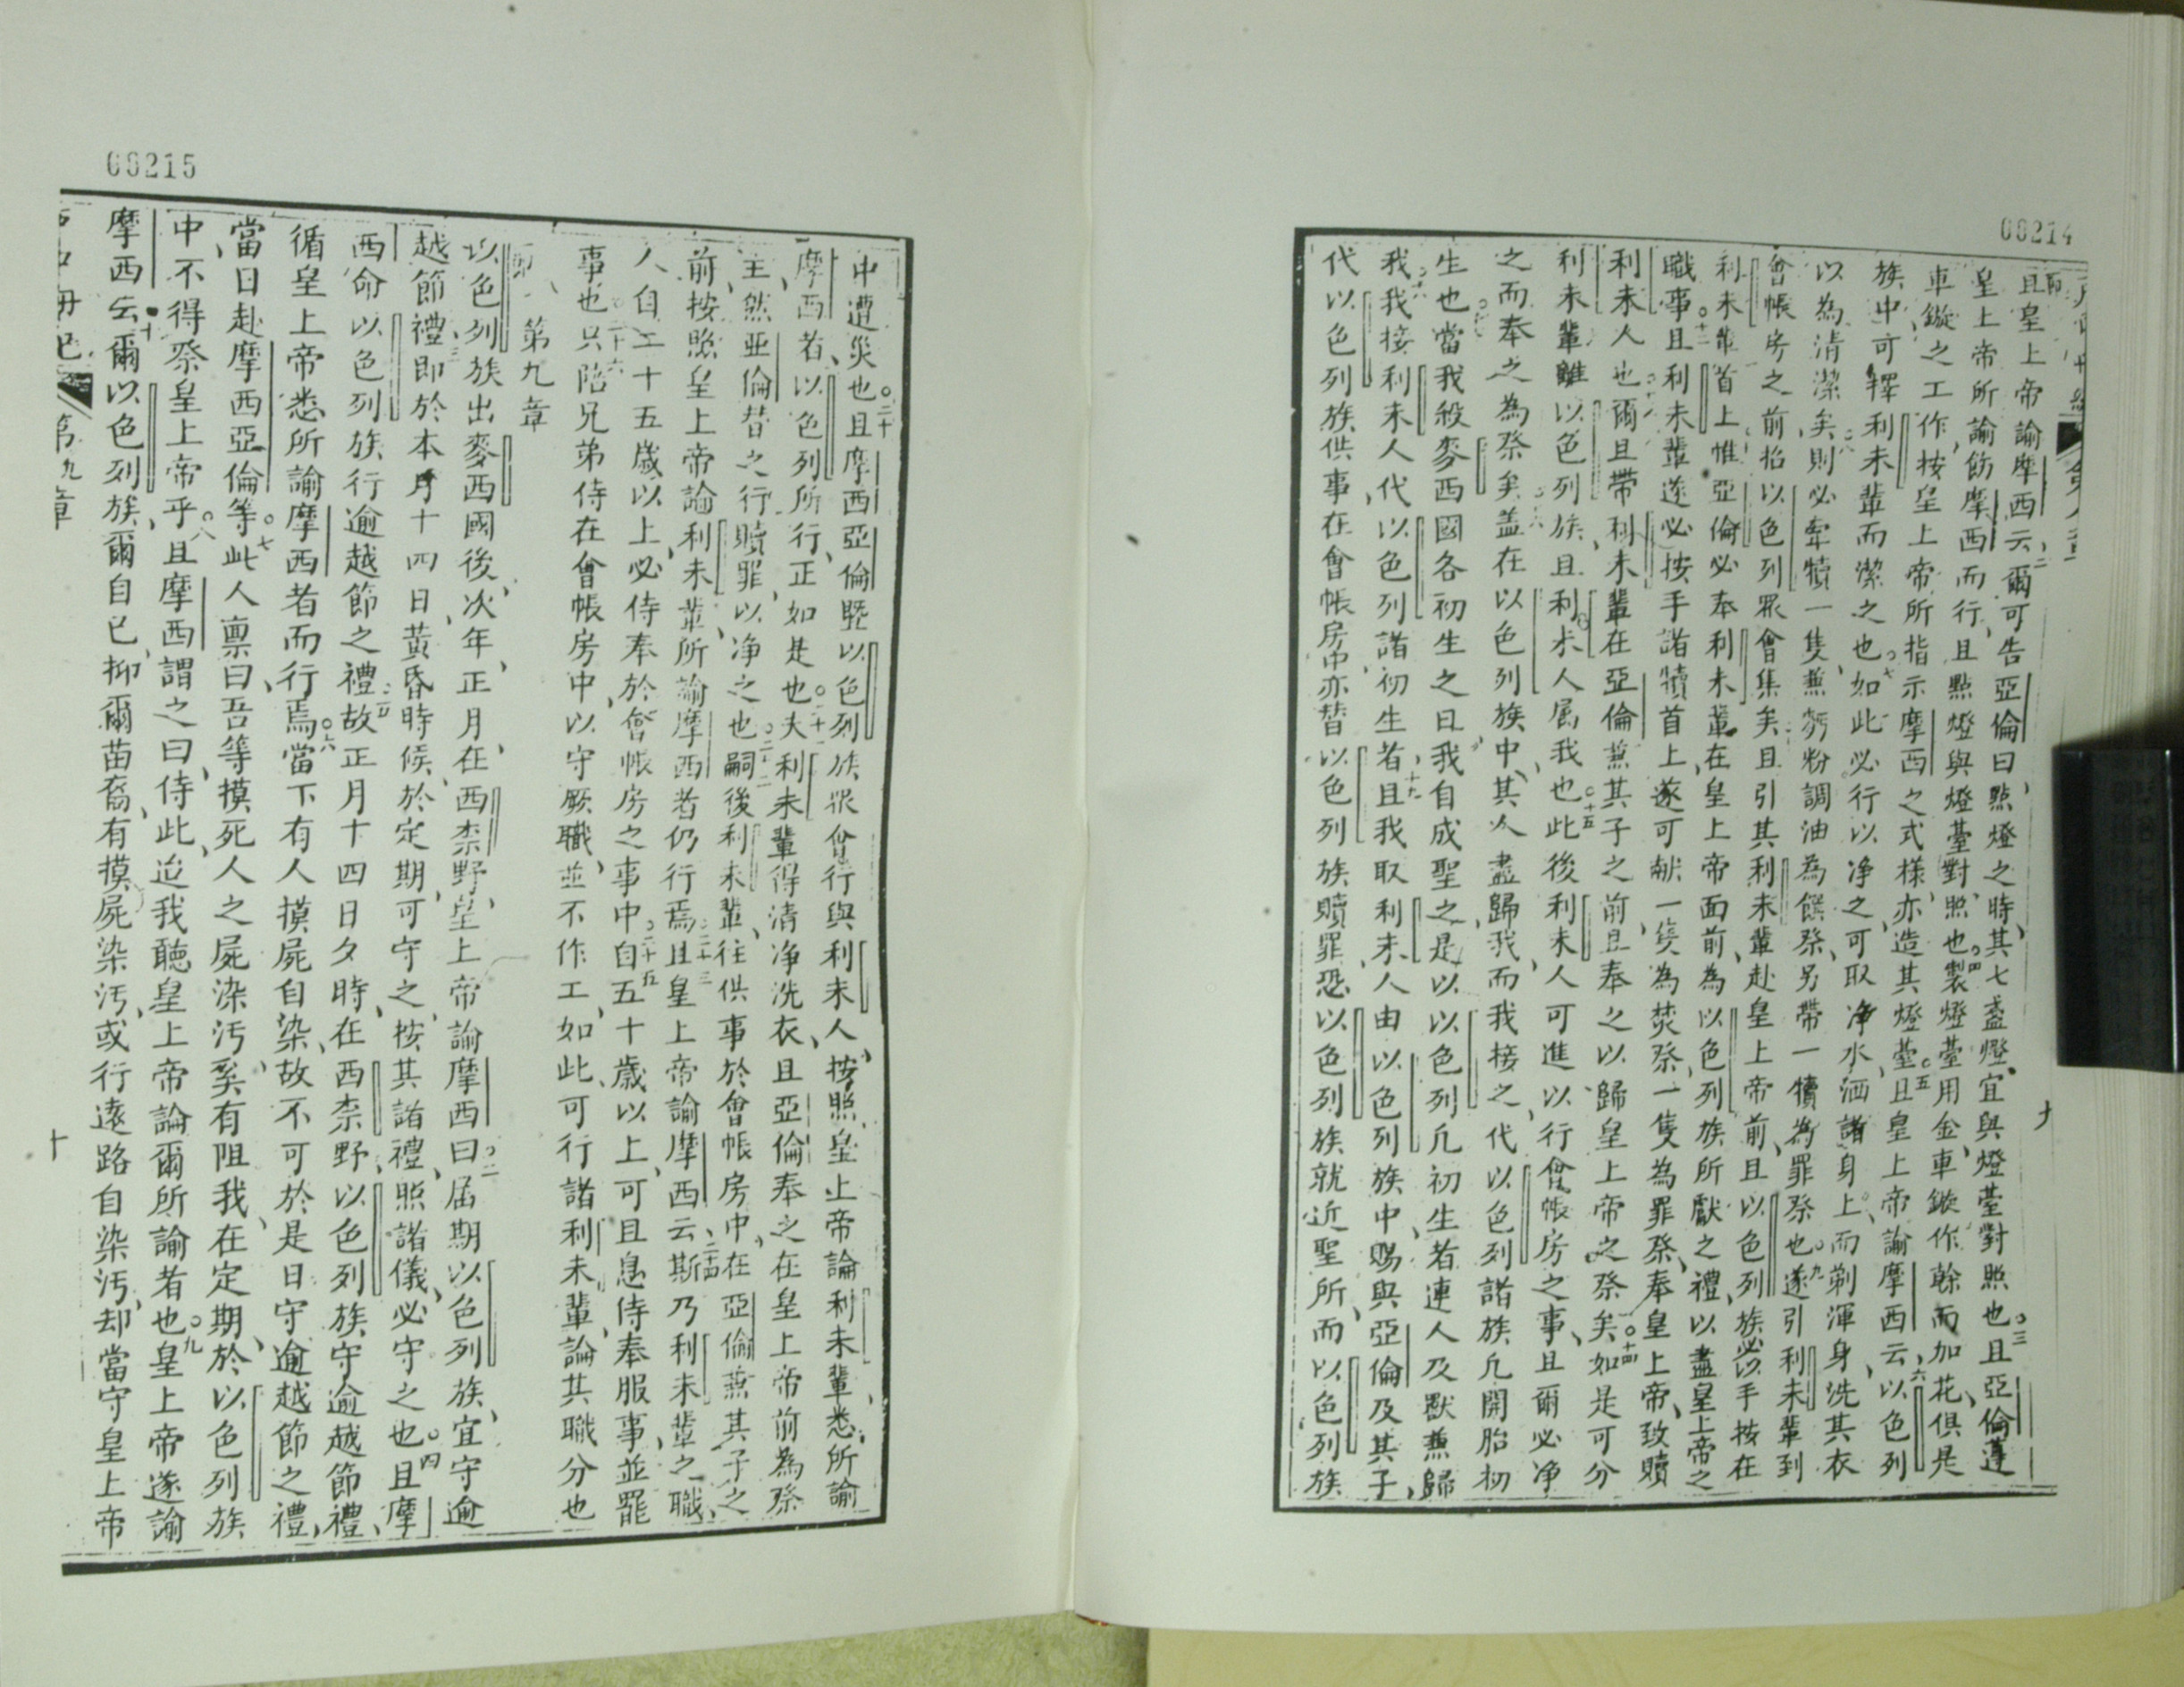 00214
且皇上帝諭摩西云爾可告亞倫曰點燈之時其七盞燈宜與燈臺對照也三且亞倫遵
皇上帝所諭飭摩西而行且點燈與燈臺對照也四製燈臺用金車鏇作榦而加花俱是
車鏇之工作按皇上帝所指示摩西之式樣亦造其燈臺五且皇上帝諭摩西云六以色列
族中可擇利未輩而潔之也七如此必行以净之可取净水洒諸身上而剃渾身洗其衣
以為清潔矣八則必牽犢一隻兼麪粉調油為饌祭另帶一犢為罪祭也九遂引利未輩到
會帳房之前招以色列眾會集矣且引其利未輩赴皇上帝前且以色列族必以手按在
利未輩首上惟亞倫必奉利未輩在皇上帝面前為以色列族所獻之禮以盡皇上帝之
職事十二且利未輩遂必按手諸犢首上遂可献一隻為焚祭一隻為罪祭奉皇上帝致贖
利未人也爾且帶利未輩在亞倫兼其子之前且奉之以歸皇上帝之祭矣十四如是可分
利未輩離以色列族且利未人屬我也十五此後利未人可進以行會帳房之事且爾必净
之而奉之為祭矣盖在以色列族中其人盡歸我而我接之代以色列諸族凡開胎初
生也當我殺麥西國各初生之日我自成聖之是以以色列凡初生者連人及獸兼歸
我我接利未人代以色列諸初生者十九且我取利未人由以色列族中賜與亞倫及其子
代以色列族供事在會帳房中亦替以色列族贖罪恐以色列族就近聖所而以色列族
九
00215
中遭災也二十且摩西亞倫暨以色列族眾會行與利未人按照皇上帝諭利未輩悉所諭
摩西者以色列所行正如是也二十一夫利未輩得清净洗衣且亞倫奉之在皇上帝前為祭
主然亞倫替之行贖罪以净之也二十二嗣後利未輩往供事於會帳房中在亞倫兼其子之
前按照皇上帝諭利未輩所諭摩西者仍行焉二十三且皇上帝諭摩西云二十四斯乃利未輩之職
人自二十五歲以上必侍奉於會帳房之事中二十五自五十歲以上可且息侍奉服事並罷
事也二十六只陪兄弟侍在會帳房中以守厥職並不作工如此可行諸利未輩論其職分也
第九章
以色列族出麥西國後次年正月在西柰野皇上帝諭摩西曰二屆期以色列族宜守逾
越節禮三即於本月十四日黃昏時候於定期可守之按其諸禮照諸儀必守之也四且摩
西命以色列族行逾越節之禮五故正月十四日夕時在西柰野以色列族守逾越節禮
循皇上帝悉所諭摩西者而行焉六當下有人摸屍自染故不可於是日守逾越節之禮
當日赴摩西亞倫等七此人禀曰吾等摸死人之屍染汚奚有阻我在定期於以色列族
中不得祭皇上帝乎八且摩西謂之曰侍此迨我聽皇上帝論爾所諭者也九皇上帝遂諭
摩西云十爾以色列族爾自己抑爾苗裔有摸屍染汚或行遠路自染汚却當守皇上帝
第九章
十